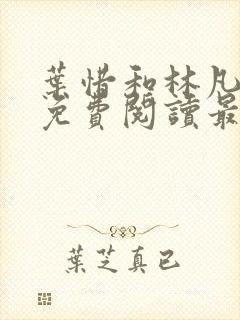 葉惜和林凡
免費閱讀最
葉芝真已